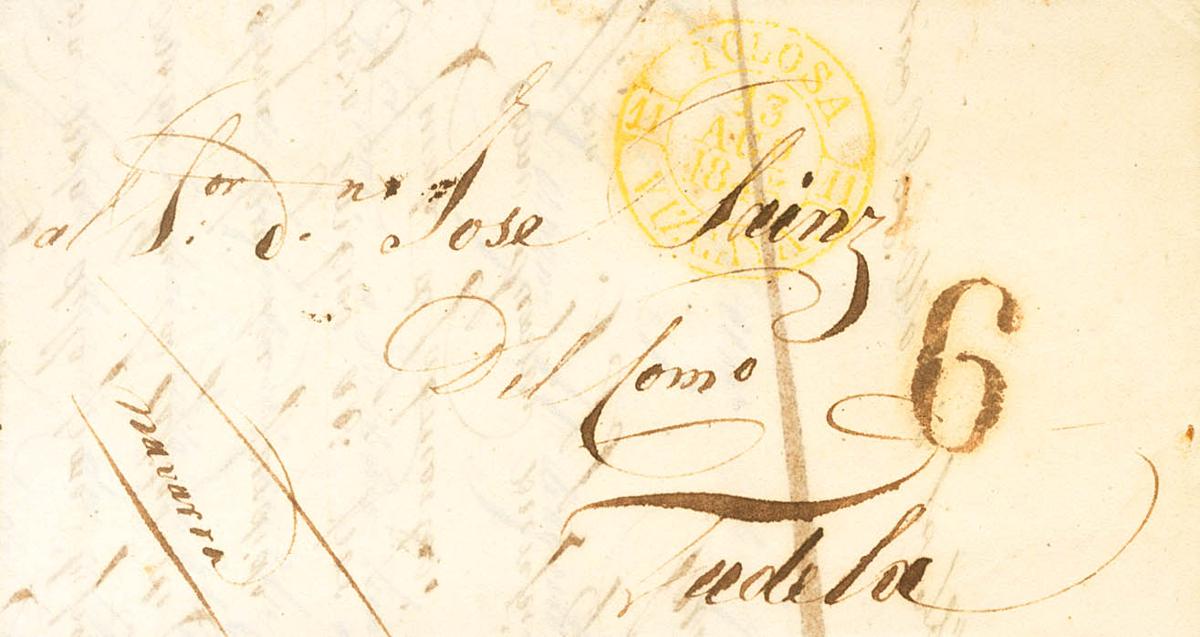 TOLOSA
13
11
11
18
al Sor. dn. Jose Sainz
Del Como
6
navarra
Tudela